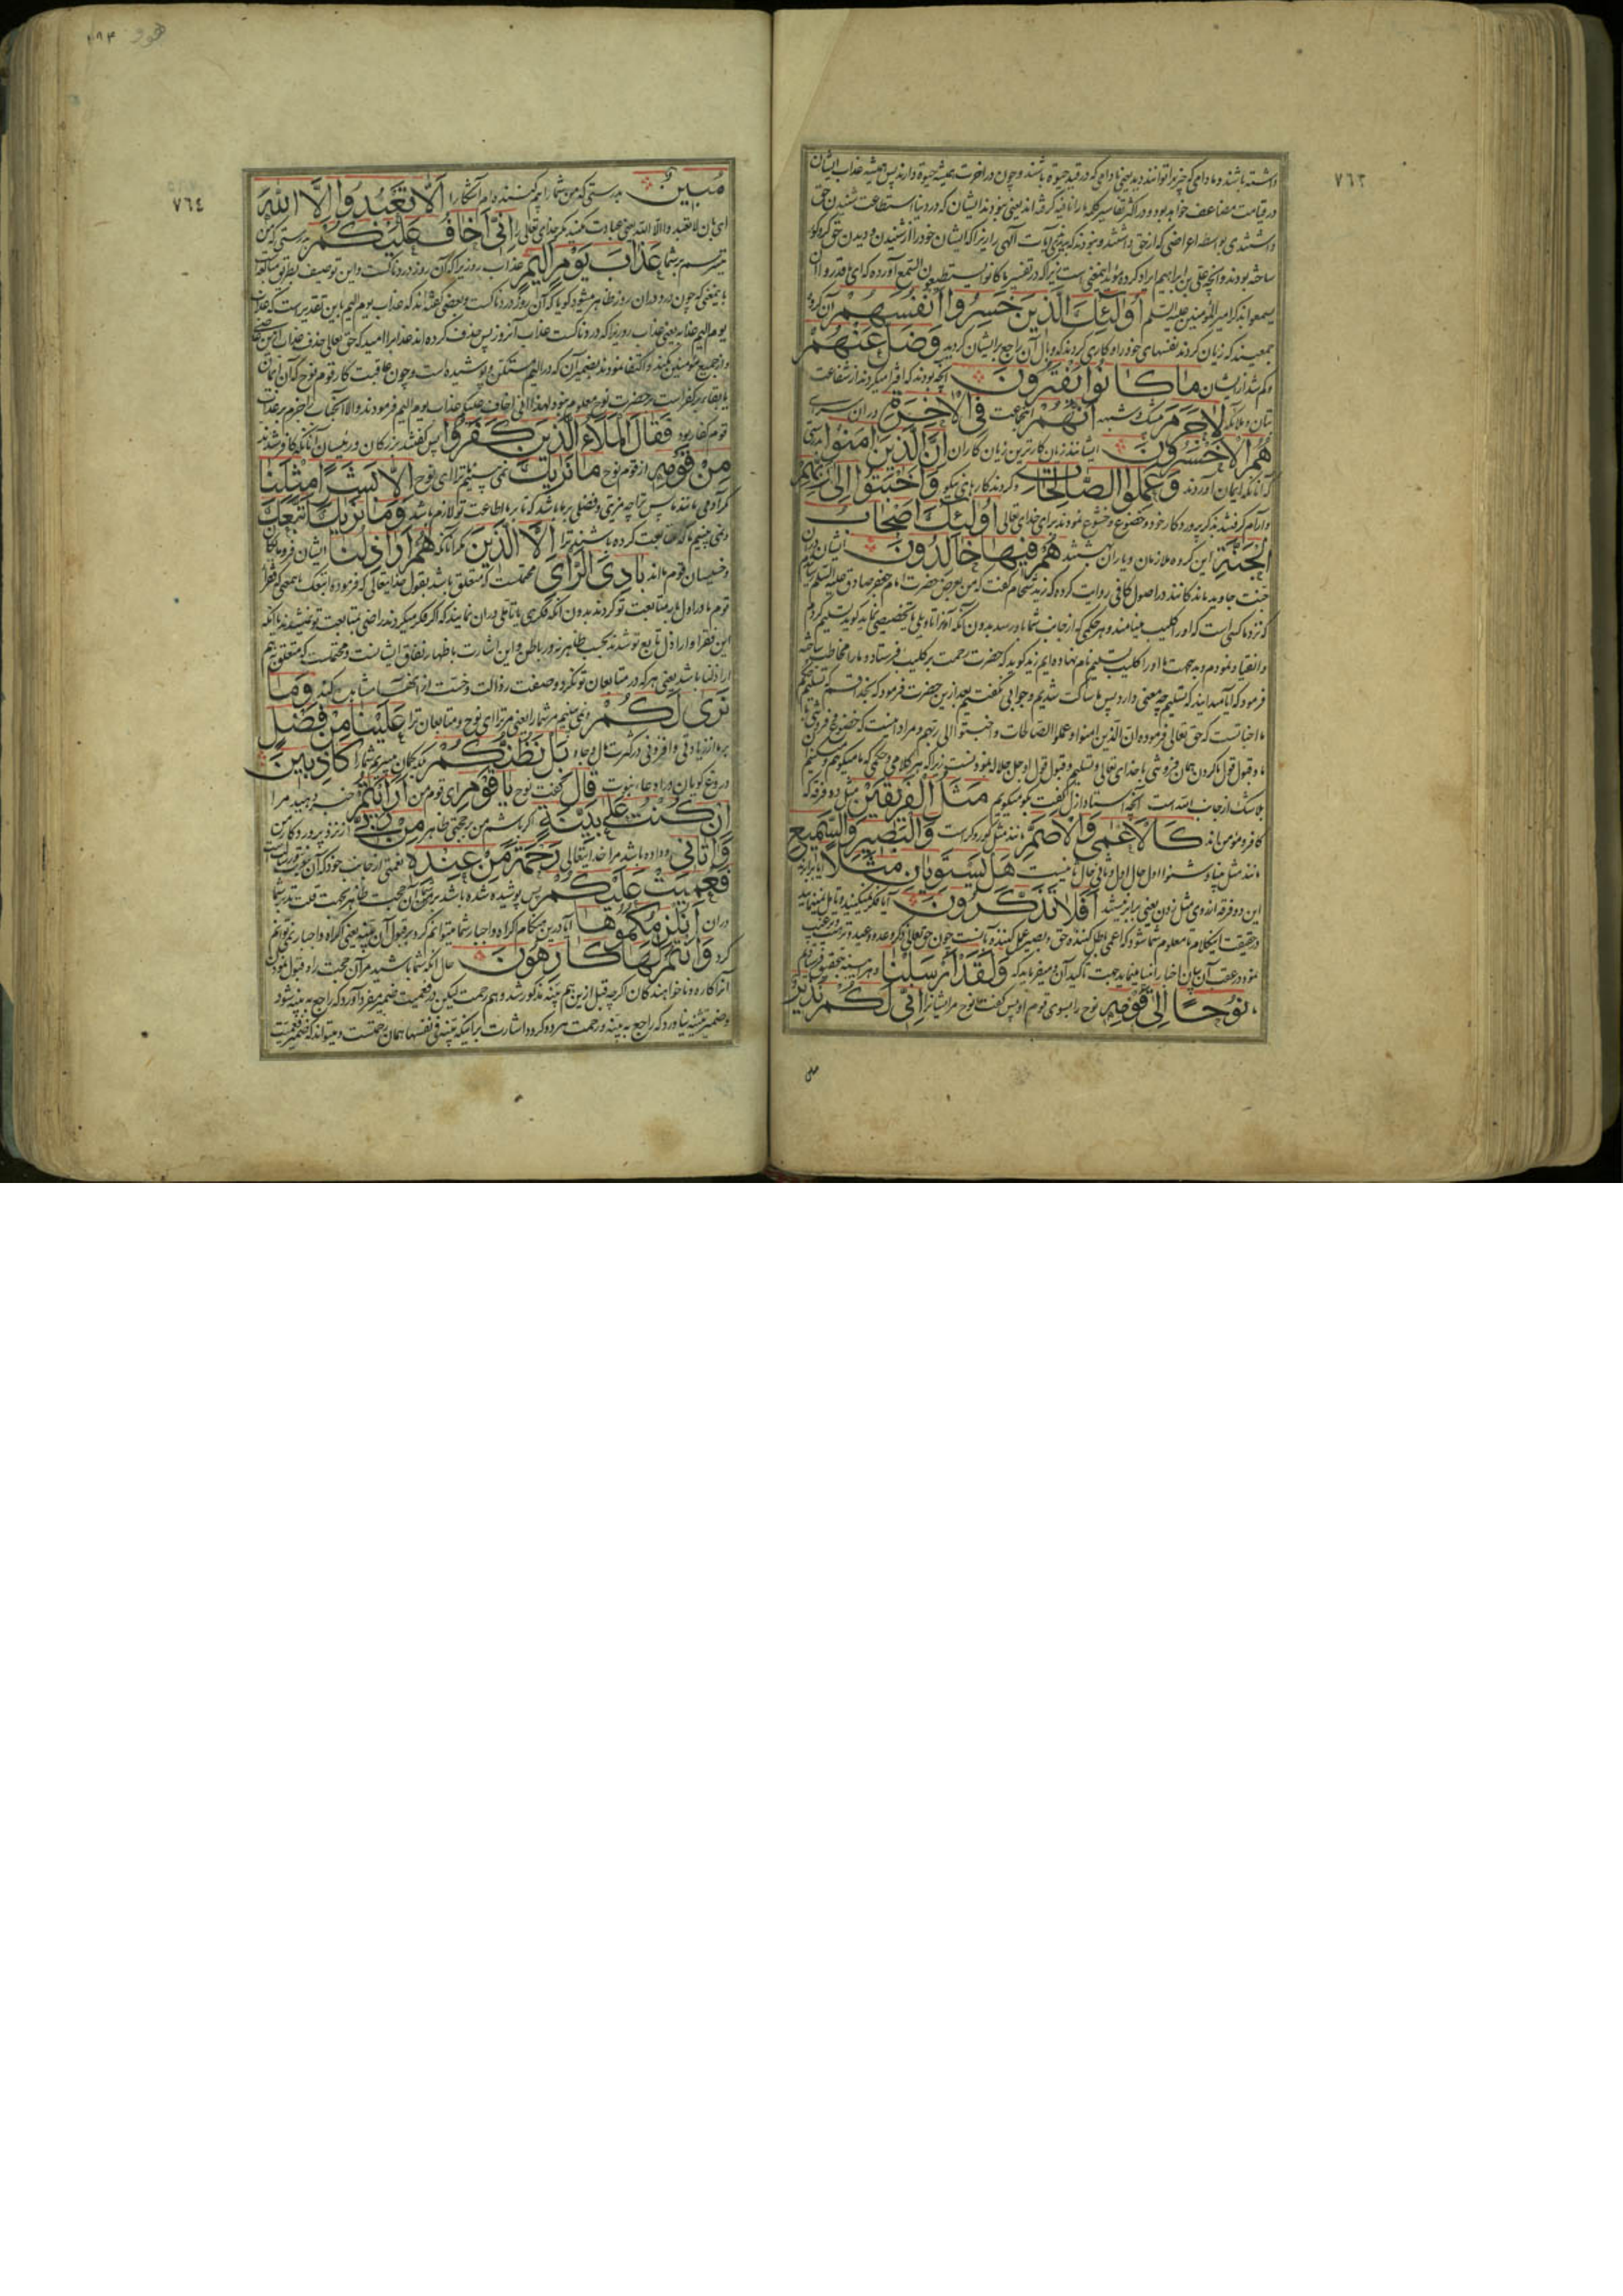 ٧٦٣
داشته باشند و مادامی که چیز را توانند دید یعنی مادامی که در قید حیوة باشند و چون در اخرت همیشه حیوة دارند پس همیشه عذاب ایشان
در قیامت مضاعف خواهد بود و در اکثر تفاسیر کلمه ما را نافیه گرفته اند یعنی نبودند ایشان که در دنیا استطاعت شنیدن حق
داشتندی بواسطه اعراضی که از حق داشتند و نبودند که ببینند آیات الهی را زیرا که ایشان خود را از شنیدن و دیدن حق کر و کور
ساخته بودند و آنچه علی بن ابراهیم ایراد کرده مؤید اینمعنی است زیرا که در تفسیر ما کانوا یستطیعون السمع آورده که ای ما قدروا ان
یسمعوا بذکر امیر المؤمنین علیه السلم أُولَئِكَ الَّذِينَ خَسِرُوا أَنْفُسَهُمْ آن گروه
جمعیند که زیان کردند نفسهای خود را و کاری کردند که وبال آن راجع بر ایشان گردید وَضَلَّ عَنْهُمْ
و گم شد از ایشان مَا كَانُوا يَفْتَرُونَ آنچه بودند که افترا میکردند از شفاعت
بتان و ملائکه لَاجَرَمَ بیشک و شبهه أَنَّهُمْ آنجماعت فِي الْآخِرَةِ در ان سرای
هُمُ الْأَخْسَرُونَ ایشانند زیان کارترین زیان کاران إِنَّ الَّذِينَ آمَنُوا بدرستی
که آنانکه ایمان آوردند وَعَمِلُوا الصَّالِحَاتِ و کردند کارهای نیکو وَأَخْبَتُوا إِلَى رَبِّهِمْ
و آرام گرفتند بذکر پروردکار خود و خضوع و خشوع نمودند برای خدای تعالی أُولَئِكَ أَصْحَابُ
الْجَنَّةِ این گروه ملازمان و یاران بهشتند هُمْ فِيهَا خَالِدُونَ ایشان در ان
جنت جاوید مانندکانند در اصول کافی روایت کرده که زید شحام گفت که من بعرض حضرت امام جعفر صادق علیه السلم رسانیدم
که نزد ما کسی است که او را کلیب مینامند و هر حکمی که از جانب شما باو رسد بدون آنکه آنرا تاویلی یا تخصیصی نماید گوید تسلیم کردم
و انقیاد نمودم و بدینجهت ما او را کلیب تسلیم نام نهاده ایم زید گوید که حضرت رحمت بر کلیب فرستاد و ما را مخاطب ساخته
فرمود که آیا میدانید که تسلیم چه معنی دارد پس ما ساکت شدیم و جوابی نگفتیم بعد ازین حضرت فرمود که بخدا قسم که تسلیم
اخباتست که حق تعالی فرموده ان الذین امنوا و عملوا الصالحات و اخبتوا الی ربهم و مراد اینست که خضوع و فروتنی
و قبول قول ما کردن همان فروتنی با خدای تعالی و تسلیم و قبول قول او جل جلاله نمودنست زیرا که هر کلامی و حکمی که ما میگوییم و میکنیم
بلاشک از جانب الله است آنچه استاد ازل گفت بگو میکویم مَثَلُ الْفَرِيقَيْنِ مثل دو فرقه که
کافر و مؤمن اند كَالْأَعْمَى وَالْأَصَمِّ مانند مثل کور و کر است وَالْبَصِيرِ وَالسَّمِيعِ
و مانند مثل بینا و شنوا اول حال اول و ثانی حال ثانیست هَلْ يَسْتَوِيَانِ مَثَلًا آیا برابرند
این دو فرقه از روی مثل زدن یعنی برابر نیستند أَفَلَا تَذَكَّرُونَ آیا فکر نمیکنید و تامل نمینمایید
در حقیقت اینکلام تا معلوم شما شود که اعمی باطل کننده حق و بصیر عمل کننده بآنست چون حق تعالی ذکر وعده و وعید و ترغیب و ترهیب
نمود در عقب آن بیان اخبار انبیا مینماید بجهت تاکید آن و میفرماید که وَلَقَدْ أَرْسَلْنَا و هر اینه بتحقیق فرستادیم
نُوحًا إِلَى قَوْمِهِ نوح را بسوی قوم او پس گفت نوح مر ایشانرا إِنِّي لَكُمْ نَذِيرٌ
هود
٧٦٤
مُبِينٌ بدرستی که من شما را بیم کننده ام آشکارا أَلَّا تَعْبُدُوا إِلَّا اللَّهَ
ای بان لا تعبدوا الا الله یعنی عبادت مکنید مگر خدای تعالی را إِنِّي أَخَافُ عَلَيْكُمْ بدرستی که من
میترسم بر شما عَذَابَ يَوْمٍ أَلِيمٍ عذاب روزیرا که آن روز دردناکست و این توصیف بطریق مبالغه است
باینمعنی که چون درد در ان روز ظاهر میشود گویا که آن روز دردناکست و بعضی گفته اند که عذاب یوم الیم باین تقدیر است که عذاب
یوم الیم عذابه یعنی عذاب روزیرا که دردناکست عذاب آنروز پس حذف کرده اند عذاب را
قوم کفار بود فَقَالَ الْمَلَأُ الَّذِينَ كَفَرُوا پس گفتند بزرکان و رئیسان آنانکه کافر شدند
مِنْ قَوْمِهِ از قوم نوح مَا نَرَاكَ نمی بینیم ترا ای نوح إِلَّا بَشَرًا مِثْلَنَا
مگر آدمی مانند ما پس ترا چه مزیتی و فضلی بر ما باشد که تا بر ما اطاعت تو لازم باشد وَمَا نَرَاكَ اتَّبَعَكَ
و نمی بینیم ما که متابعت کرده باشند ترا إِلَّا الَّذِينَ مگر آنانکه هُمْ أَرَاذِلُنَا ایشان فرومایکان
و خسیسان قوم ما اند بَادِيَ الرَّأْيِ محتملست که متعلق باشد بقول خدایتعالی که فرموده اتبعک یعنی که فقرا
قوم ما در اول رای متابعت تو کردند بدون آنکه فکری یا تاملی در ان نمایند که اگر فکر میکردند راضی بمتابعت تو نمیشدند یا آنکه
این فقرا و اراذل تابع تو شدند بحسب ظاهر نه در باطن و این اشارت باظهار نفاق ایشانست و محتملست که متعلق بهم
اراذلنا باشد یعنی هر که در متابعان تو نگرد وصفت رذالت و خست از انها مشاهده کند وَمَا
نَرَى لَكُمْ و نمی بینیم مر شما را یعنی مر ترا ای نوح و متابعان ترا عَلَيْنَا مِنْ فَضْلٍ
بر ما از زیادتی و افزونی در کثرت مال و جاه بَلْ نَظُنُّكُمْ بلکه گمان میبریم شما را كَاذِبِينَ
دروغ گویان در ادعاء نبوت قَالَ گفت نوح يَا قَوْمِ ای قوم من أَرَأَيْتُمْ خبر دهید مرا
إِنْ كُنْتُ عَلَى بَيِّنَةٍ اگر باشم من بر حجتی ظاهر مِنْ رَبِّي از نزد پروردکار من
وَآتَانِي و داده باشد مرا خدایتعالی رَحْمَةً مِنْ عِنْدِهِ نعمتی از جانب خود که آن نبوتست
فَعُمِّيَتْ عَلَيْكُمْ پس پوشیده شده باشد بر شما
دران أَنُلْزِمُكُمُوهَا آیا درین هنکام اکراه و اجبار شما میتوانم کرد بر قبول آن بینه یعنی اکراه و اجباری نتوانم
کرد وَأَنْتُمْ لَهَا كَارِهُونَ حال آنکه شما باشید مر آن حجت را و قبول نمودن
آنرا کاره و ناخواهندکان اگر چه قبل ازین هم بینه مذکور شد و هم رحمت لیکن در فعمیت ضمیر مفرد آورد که راجع به بینه شود
و ضمیر تثنیه نیاورد که راجع به بینه و رحمت هر دو گردد اشارت بر اینکه بینه فی نفسها همان رحمتست و میتواند که ضمیر فعمیت